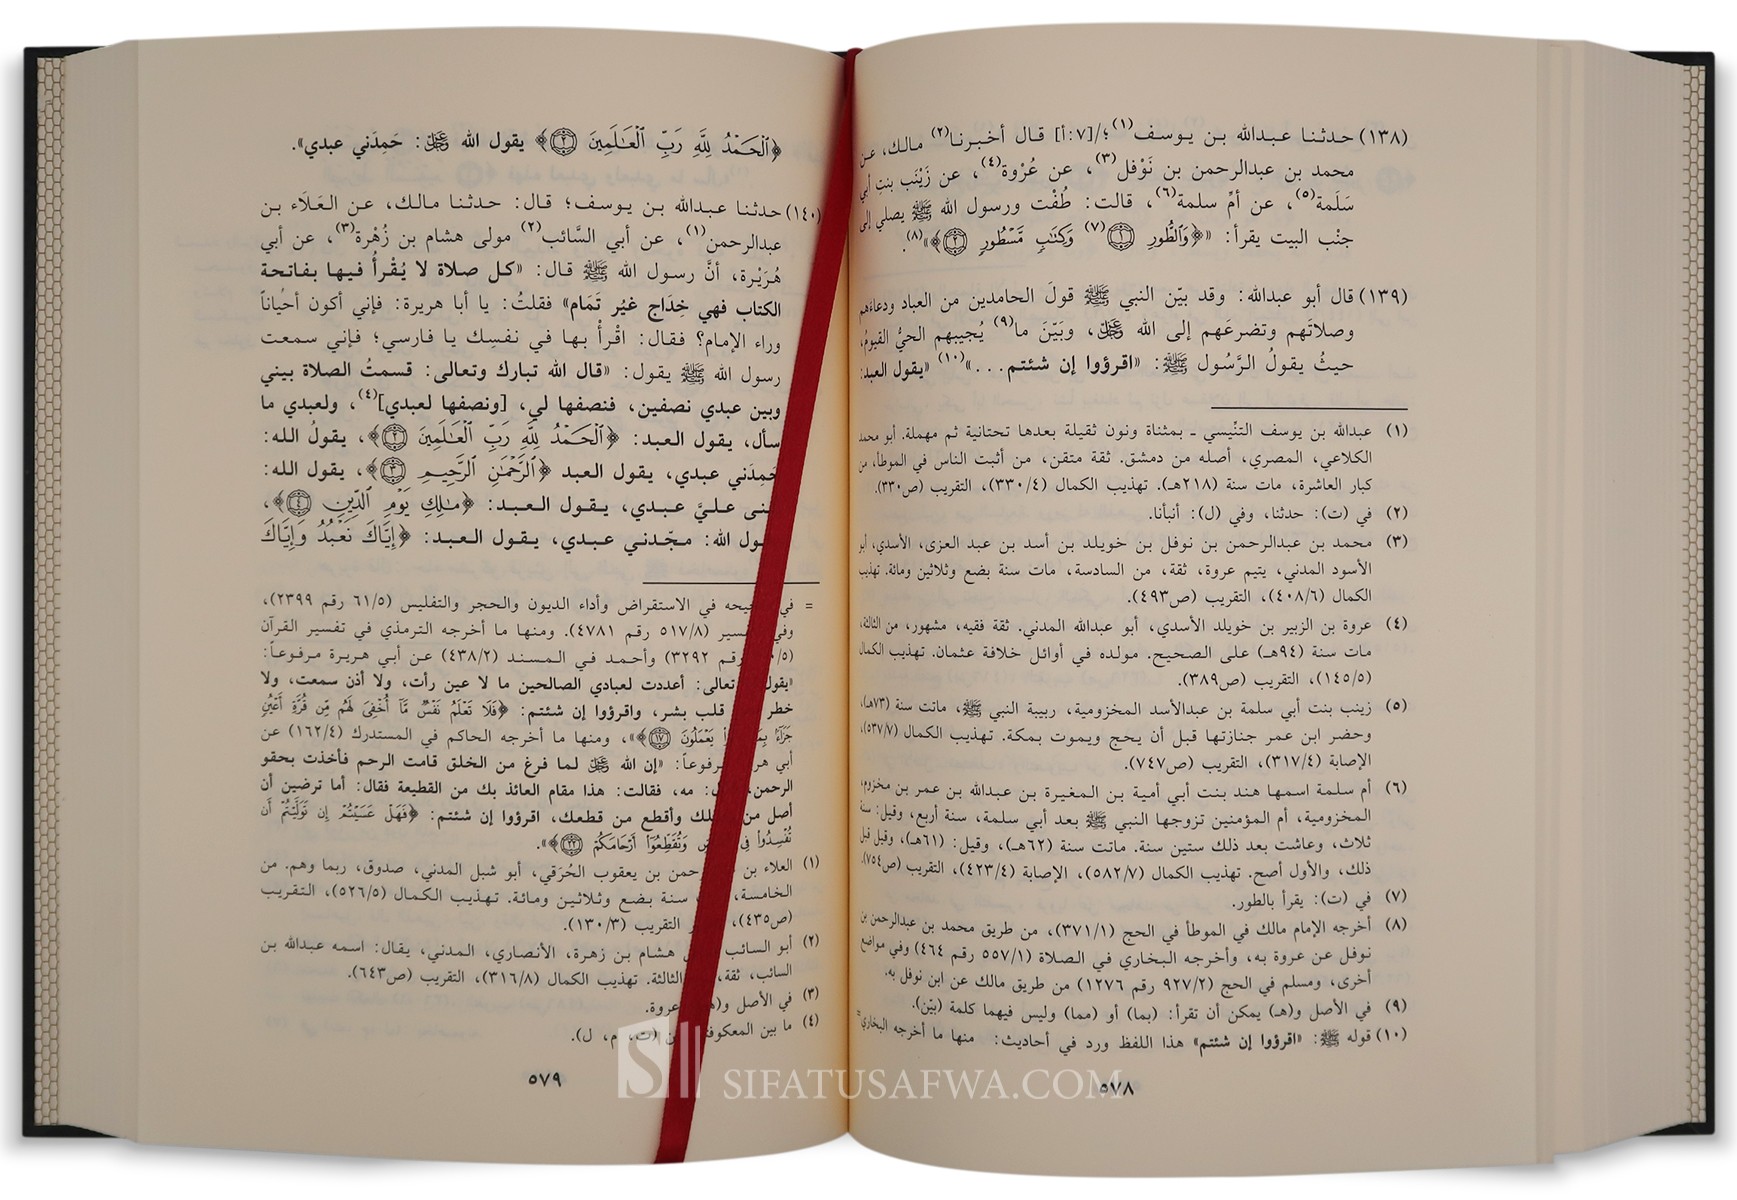 (١٣٨) حدثنا عبدالله بن يوسف(١)؛/[٧:أ] قال أخبرنا(٢) مالك، عن
محمد بن عبدالرحمن بن نَوْفل(٣)، عن عُرْوة(٤)، عن زَيْنَب بنت أبي
سَلَمة(٥)، عن أمِّ سلمة(٦)، قالت: طُفْت ورسول الله ﷺ يصلي إلى
جنْب البيت يقرأ: «﴿وَٱلطُّورِ ۝١(٧) وَكِتَٰبٍ مَّسْطُورٍ ۝٢﴾»(٨).
(١٣٩) قال أبو عبدالله: وقد بيّن النبي ﷺ قولَ الحامدين من العباد ودعاءَهم
وصلاتَهم وتضرعَهم إلى الله عَزَّوَجَلَّ، وبَيّنَ ما(٩) يُجيبهم الحيُّ القيومُ،
حيثُ يقولُ الرَّسُول ﷺ: «اقرؤوا إن شئتم...»(١٠) «يقول العبد:
(١) عبدالله بن يوسف التنّيسي ـ بمثناة ونون ثقيلة بعدها تحتانية ثم مهملة. أبو محمد
الكلاعي، المصري، أصله من دمشق. ثقة متقن، من أثبت الناس في الموطأ، من
كبار العاشرة، مات سنة (٢١٨هـ). تهذيب الكمال (٣٣٠/٤)، التقريب (ص٣٣٠).
(٢) في (ت): حدثنا، وفي (ل): أنبأنا.
(٣) محمد بن عبدالرحمن بن نوفل بن خويلد بن أسد بن عبد العزى، الأسدي، أبو
الأسود المدني، يتيم عروة، ثقة، من السادسة، مات سنة بضع وثلاثين ومائة. تهذيب
الكمال (٤٠٨/٦)، التقريب (ص٤٩٣).
(٤) عروة بن الزبير بن خويلد الأسدي، أبو عبدالله المدني. ثقة فقيه، مشهور، من الثالثة،
مات سنة (٩٤هـ) على الصحيح. مولده في أوائل خلافة عثمان. تهذيب الكمال
(١٤٥/٥)، التقريب (ص٣٨٩).
(٥) زينب بنت أبي سلمة بن عبدالأسد المخزومية، ربيبة النبي ﷺ، ماتت سنة (٧٣هـ)،
وحضر ابن عمر جنازتها قبل أن يحج ويموت بمكة. تهذيب الكمال (٥٣٧/٧)،
الإصابة (٣١٧/٤)، التقريب (ص٧٤٧).
(٦) أم سلمة اسمها هند بنت أبي أمية بن المغيرة بن عبدالله بن عمر بن مخزوم،
المخزومية، أم المؤمنين تزوجها النبي ﷺ بعد أبي سلمة، سنة أربع، وقيل: سنة
ثلاث، وعاشت بعد ذلك ستين سنة. ماتت سنة (٦٢هـ)، وقيل: (٦١هـ)، وقيل قبل
ذلك، والأول أصح. تهذيب الكمال (٥٨٢/٧)، الإصابة (٤٢٣/٤)، التقريب (ص٧٥٤).
(٧) في (ت): يقرأ بالطور.
(٨) أخرجه الإمام مالك في الموطأ في الحج (٣٧١/١)، من طريق محمد بن عبدالرحمن بن
نوفل عن عروة به، وأخرجه البخاري في الصلاة (٥٥٧/١ رقم ٤٦٤) وفي مواضع
أخرى، ومسلم في الحج (٩٢٧/٢ رقم ١٢٧٦) من طريق مالك عن ابن نوفل به.
(٩) في الأصل و(هـ) يمكن أن تقرأ: (بما) أو (مما) وليس فيهما كلمة (بيّن).
(١٠) قوله ﷺ: «اقرؤوا إن شئتم» هذا اللفظ ورد في أحاديث: منها ما أخرجه البخاري =
٥٧٨
﴿ٱلْحَمْدُ لِلَّهِ رَبِّ ٱلْعَٰلَمِينَ ۝٢﴾ يقول الله عَزَّوَجَلَّ: حَمِدَني عبدي».
(١٤٠) حدثنا عبدالله بن يوسف؛ قال: حدثنا مالك، عن العَلَاء بن
عبدالرحمن(١)، عن أبي السَّائب(٢) مولى هشام بن زُهْرة(٣)، عن أبي
هُرَيْرة، أنَّ رسول الله ﷺ قال: «كل صلاة لا يُقْرأُ فيها بفاتحة
الكتاب فهي خِدَاج غيُر تَمَام» فقلتُ: يا أبا هريرة: فإني أكون أحْياناً
وراء الإمام؟ فقال: اقْرأْ بها في نفسِك يا فارسي؛ فإني سمعت
رسول الله ﷺ يقول: «قال الله تبارك وتعالى: قسمتُ الصلاة بيني
وبين عبدي نصفين، فنصفها لي، [ونصفها لعبدي](٤)، ولعبدي ما
سأل، يقول العبد: ﴿ٱلْحَمْدُ لِلَّهِ رَبِّ ٱلْعَٰلَمِينَ ۝٢﴾، يقولُ الله:
حَمِدَني عبدي، يقول العبد ﴿ٱلرَّحْمَٰنِ ٱلرَّحِيمِ ۝٣﴾، يقول الله:
ـنى عليَّ عبدي، يقول العبد: ﴿مَٰلِكِ يَوْمِ ٱلدِّينِ ۝٤﴾،
ـول الله: مجّدني عبدي، يقول العبد: ﴿إِيَّاكَ نَعْبُدُ وَإِيَّاكَ
= في ـحيحه في الاستقراض وأداء الديون والحجر والتفليس (٦١/٥ رقم ٢٣٩٩)،
وفي ـسير (٥١٧/٨ رقم ٤٧٨١). ومنها ما أخرجه الترمذي في تفسير القرآن
(٥/ رقم ٣٢٩٢) وأحمد في المسند (٤٣٨/٢) عن أبي هريرة مرفوعاً:
«يقول تعالى: أعددت لعبادي الصالحين ما لا عين رأت، ولا أذن سمعت، ولا
خطر قلب بشر، واقرؤوا إن شئتم: ﴿فَلَا تَعْلَمُ نَفْسٌ مَّآ أُخْفِىَ لَهُم مِّن قُرَّةِ أَعْيُنٍ
جَزَآءً يَعْمَلُونَ ۝١٧﴾»، ومنها ما أخرجه الحاكم في المستدرك (١٦٢/٤) عن
أبي هر ـرفوعاً: «إن الله عَزَّوَجَلَّ لما فرغ من الخلق قامت الرحم فأخذت بحقو
الرحمن، مه، فقالت: هذا مقام العائذ بك من القطيعة فقال: أما ترضين أن
أصل من ـلك وأقطع من قطعك، اقرؤوا إن شئتم: ﴿فَهَلْ عَسَيْتُمْ إِن تَوَلَّيْتُمْ أَن
تُفْسِدُوا۟ فِى وَتُقَطِّعُوٓا۟ أَرْحَامَكُمْ ۝٢٢﴾».
(١) العلاء بن ـرحمن بن يعقوب الحُرَقي، أبو شبل المدني، صدوق، ربما وهم. من
الخامسة، سنة بضع وثلاثين ومائة. تهذيب الكمال (٥٢٦/٥)، التقريب
(ص٤٣٥)، ـر التقريب (١٣٠/٣).
(٢) أبو السائب هشام بن زهرة، الأنصاري، المدني، يقال: اسمه عبدالله بن
السائب، ثقة، الثالثة. تهذيب الكمال (٣١٦/٨)، التقريب (ص٦٤٣).
(٣) في الأصل و(هـ) عروة.
(٤) ما بين المعكوفتين (ت، م، ل).
٥٧٩
SIFATUSAFWA.COM